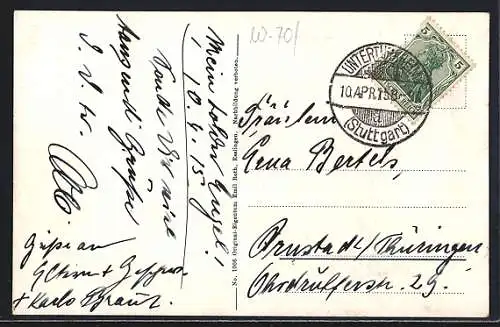 W-70/
Mein tolder Engel!
10.4.15
Sende Dir viele
tausend Grüße
I. l. tr.
Grüße an
Eltern + Geschw.
+ Karls Braut
No. 1006 Original-Eigentum Emil Roth, Esslingen. Nachbildung verboten.
5
5
UNTERTÜRKHEIM
10.APR.15
(Stuttgart)
Fräulein
Lena Bertels,
Arnstadt/Thüringen
Ohrdrufferstr. 29.